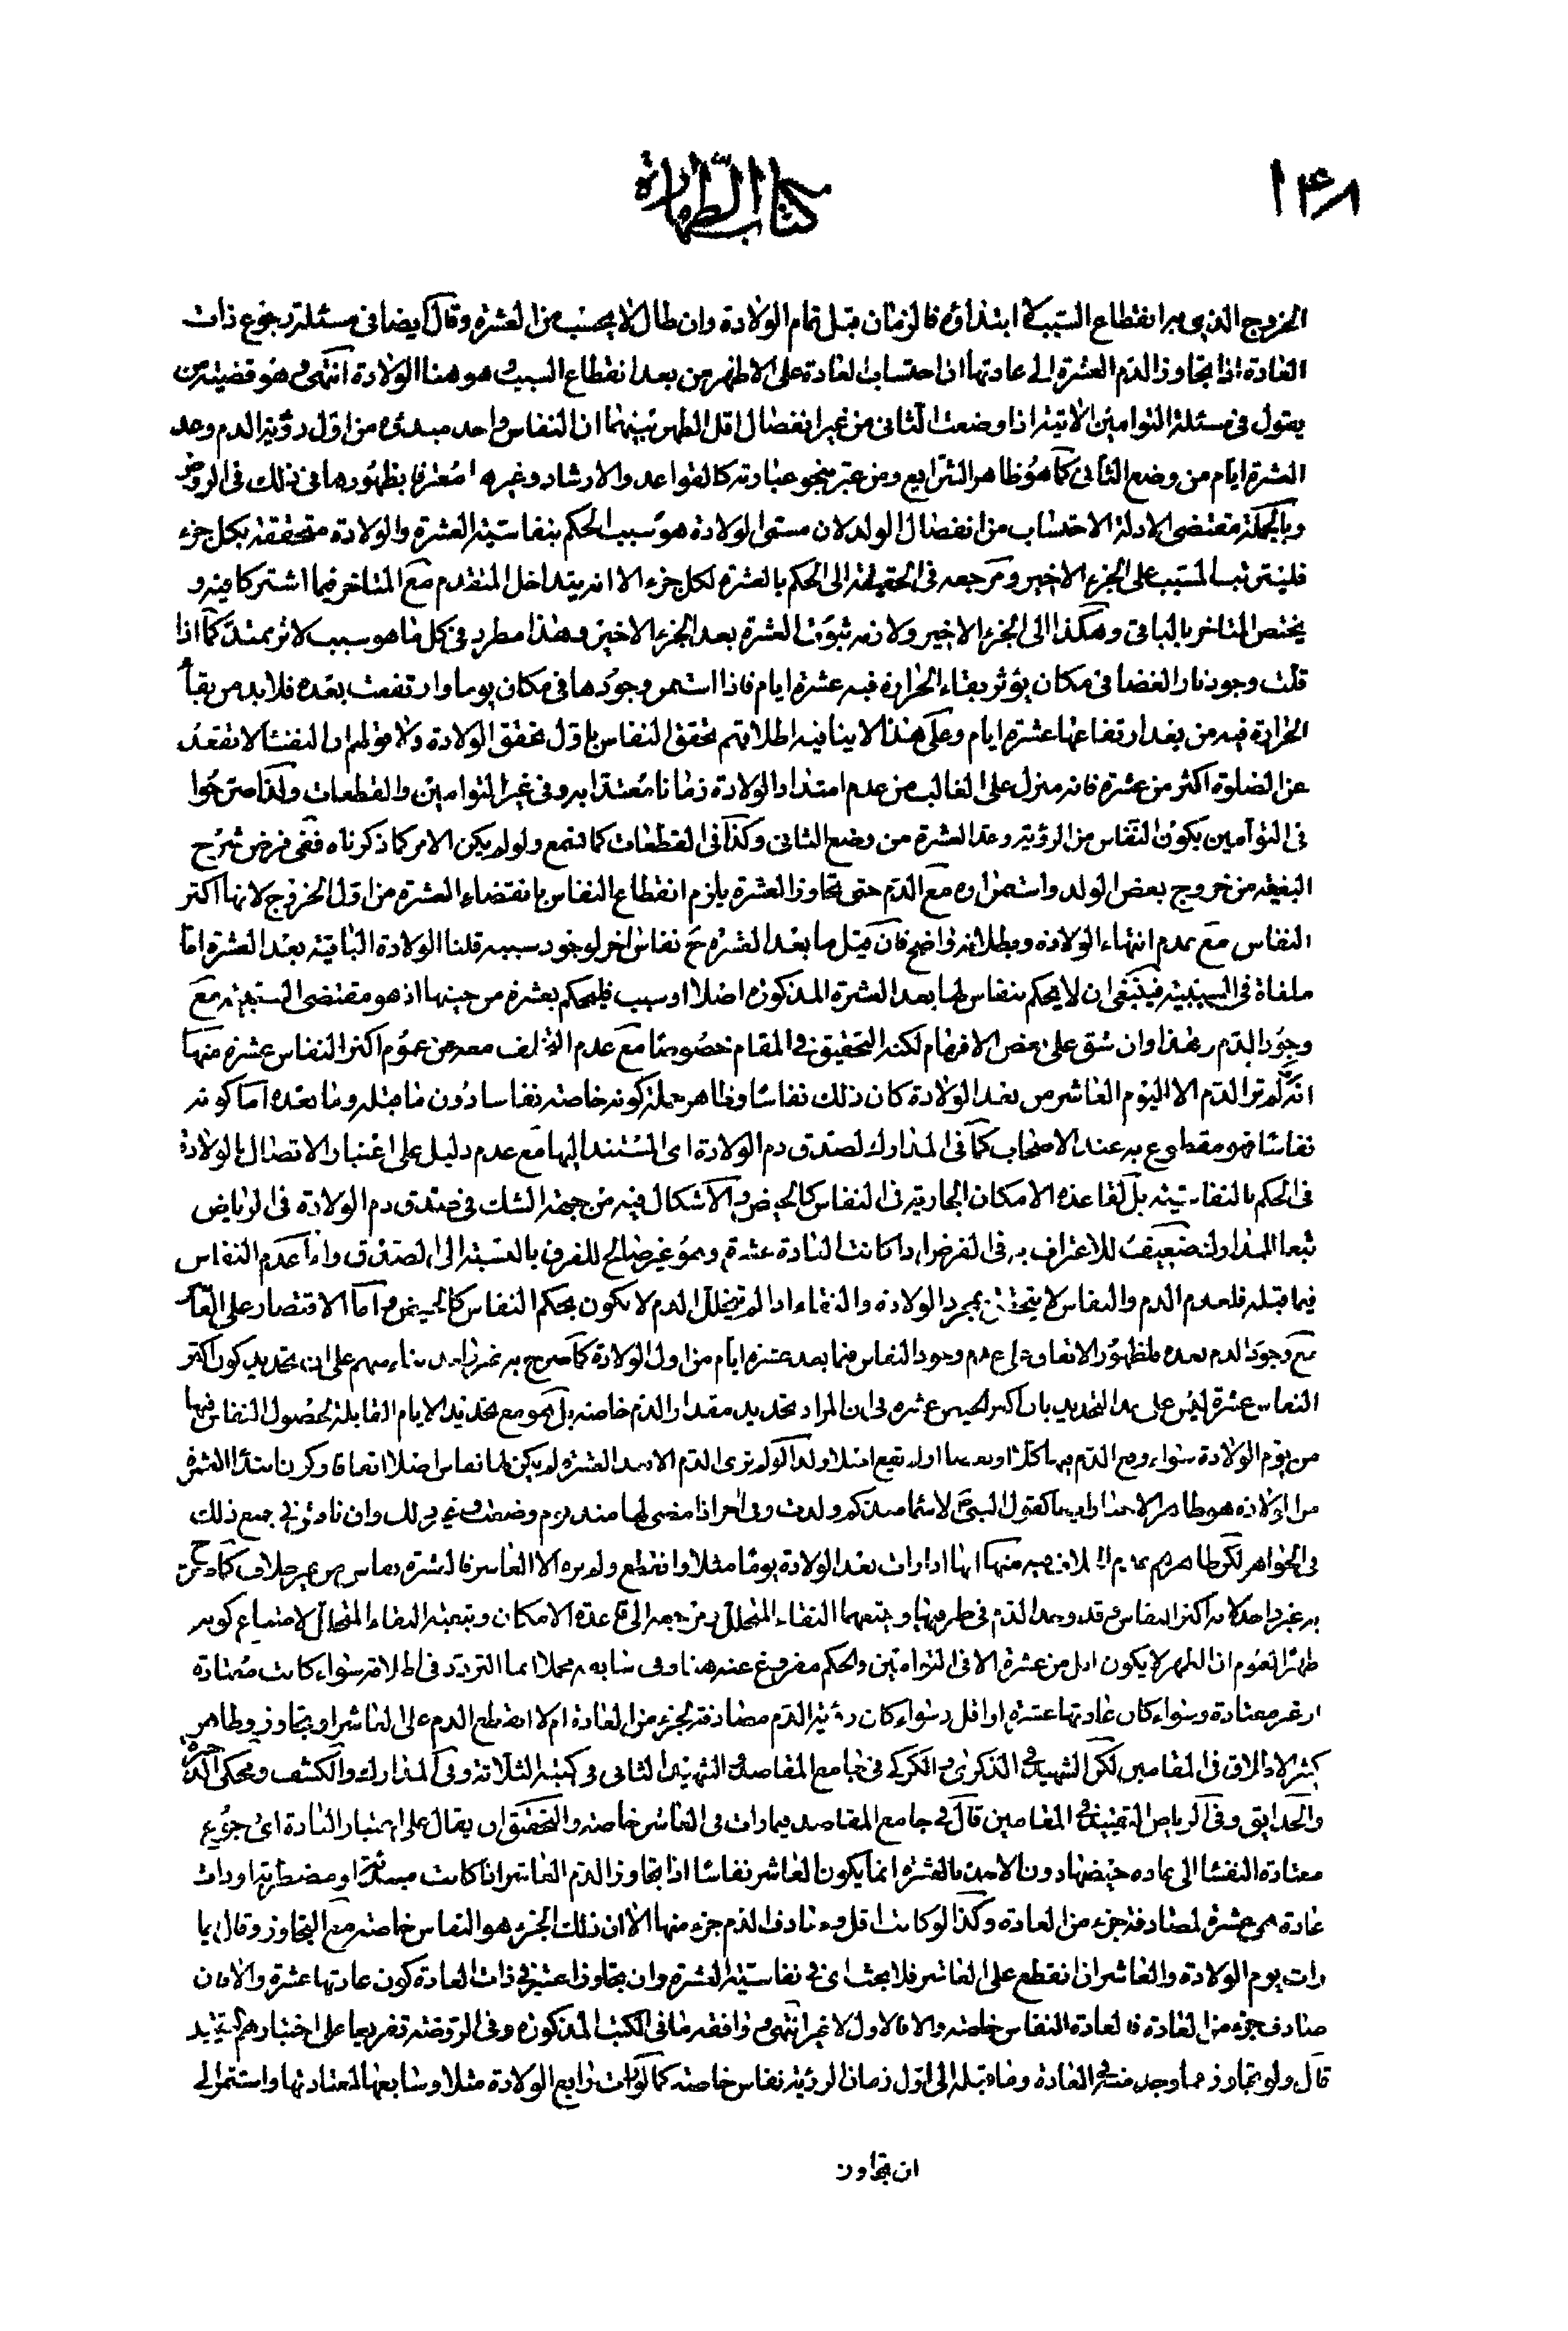 ١٤٨
كتاب الطهارة
الخروج الذي به انقطاع السبب لا ابتداؤه فالزمان قبل تمام الولادة وان طال لا يحسب من العشرة وقال ايضا في مسئلة رجوع ذات
العادة اذا تجاوز الدم العشرة الى عادتها اذا احتساب العادة على الاظهر من بعد انقطاع السبب وهو هنا الولادة انتهى وهو قضية من
يقول في مسئلة التوامين الاتية اذا وضعت الثاني من غير انفصال اقل الطهر بينهما ان النفاس واحد مبدئه من اول رؤية الدم وعد
العشرة ايام من وضع الثاني كما هو ظاهر الشرايع ومن عبر بنحو عبارته كالقواعد والارشاد وغيرها معترفا بظهورها في ذلك في الروض
وبالجملة مقتضى الادلة الاحتساب من انفصال الولد لان مسمى الولادة هو سبب الحكم بنفاسية العشرة والولادة متحققة بكل جزء
فليترتب المسبب على الجزء الاخير ومرجعه في الحقيقة الى الحكم بالعشرة لكل جزء الا انه يتداخل المتقدم مع المتاخر فيما اشتركا فيه و
يختص المتاخر بالباقي وهكذا الى الجزء الاخير ولازمه ثبوت العشرة بعد الجزء الاخير وهذا مطرد في كل ما هو سبب لاثر ممتد كما اذا
قلت وجود نار الغضا في مكان يؤثر بقاء الحرارة فيه عشرة ايام فاذا استمر وجودها في مكان يوما وارتفعت بعده فلابد من بقاء
الحرارة فيه من بعد ارتفاعها عشرة ايام وعلى هذا لا ينافيه اطلاقهم تحقق النفاس باول تحقق الولادة ولا قولهم ان النفساء لا تقعد
عن الصلوة اكثر من عشرة فانه منزل على الغالب من عدم امتداد الولادة زمانا معتدا به وفي غير التوامين والقطعات ولذا صرحوا
في التوامين بكون النفاس من الرؤية وعد العشرة من وضع الثاني وكذا في القطعات كما تسمع ولو لم يكن الامر كما ذكرناه ففي فرض شرح
البغية من خروج بعض الولد واستمراره مع الدم حتى تجاوز العشرة يلزم انقطاع النفاس بانقضاء العشرة من اول الخروج لانها اكثر
النفاس مع عدم انتهاء الولادة وبطلانه واضح فان قيل ما بعد العشرة ح نفاس اخر لوجود سببه قلنا الولادة الباقية بعد العشرة اما
ملغاة في السببية فينبغي ان لا يحكم بنفاس لها بعد العشرة المذكورة اصلا او سبب فليحكم بعشرة من حينها اذ هو مقتضى السببية مع
وجود الدم وهذا وان شق على بعض الافهام لكنه التحقيق في المقام خصوصا مع عدم التخلف معه من عموم اكثر النفاس عشرة منها
انه لو لم تر الدم الا اليوم العاشر من بعد الولادة كان ذلك نفاسا وظاهر جملة كونه خاصة نفاسا دون ما قبله وما بعده اما كونه
نفاسا فهو مقطوع به عند الاصحاب كما في المدارك لصدق دم الولادة اى المستند اليها مع عدم دليل على اعتبار الاتصال بالولادة
في الحكم بالنفاسية بل لقاعدة الامكان الجارية في النفاس كالحيض والاشكال فيه من جهة الشك في صدق دم الولادة في الرياض
تبعا للمدارك ضعيف للاعتراف به في الفرض اذا كانت العادة عشرة وهو غير صالح للفرق بالنسبة الى الصدق واما عدم النفاس
فيما قبله فلعدم الدم والنفاس لا يتحقق بمجرد الولادة والنقاء اذا لم يتخلل الدم لا يكون بحكم النفاس كالحيض واما الاقتصار على العاشر
مع وجود الدم بعده فلظهور الاتفاق على عدم وجود النفاس فيما بعد عشرة ايام من اول الولادة كما صرح به غير واحد بناء منهم على ان تحديد كون اكثر
النفاس عشرة ليس على حد التحديد بان اكثر الحيض عشرة في ان المراد تحديد مقدار الدم خاصة بل هو مع تحديد الايام القابلة لحصول النفاس فيها
من يوم الولادة سواء وقع الدم فيها كلا او بعضا او لم يقع اصلا ولذا لو لم ترى الدم الا بعد العشرة لم يكن لها نفاس اصلا اتفاقا وكون مبتدأ العشرة
من الولادة هو ظاهر الاخبار ايضا كقول النبي ص لاسماء منذ كم ولدت وفي اخر اذا مضى لها منذ يوم وضعت وغير ذلك وان ناقش في جميع ذلك
في الجواهر لكن ظاهرهم
به غير واحد لانه اكثر النفاس وقد وجد الدم في طرفيها ويتبعهما النقاء المتخلل ومرجعه الى قاعدة الامكان وتبعية النقاء المتخلل لامتناع كونه
طهرا لعموم ان الطهر لا يكون اقل من عشرة الا في التوامين والحكم مفروغ عنه هنا وفي سابقه مجملا انما التردد في اطلاقه سواء كانت معتادة
او غير معتادة وسواء كان عادتها عشرة او اقل وسواء كان رؤية الدم مصادفة لجزء من العادة ام لا انقطع الدم على العاشر او تجاوز وظاهر
كثير الاطلاق في المقامين لكن الشهيد في الذكرى والكركي في جامع المقاصد والشهيد الثاني في كتبه الثلاثة وفي المدارك والكشف ومحكي الذخيرة
والحدايق وفي الرياض التقييد في المقامين قال في جامع المقاصد فيما رات في العاشر خاصة والتحقيق ان يقال على اعتبار العادة اى رجوع
معتادة النفساء الى عادة حيضها دون الاخذ بالعشرة انما يكون العاشر نفاسا اذا تجاوز الدم العاشر اذا كانت مبتدئة او مضطربة او ذات
عادة هي عشرة لمصادفة جزء من العادة وكذا لو كانت اقل وصادف الدم جزء منها الا ان ذلك الجزء هو النفاس خاصة مع التجاوز وقال فيما
رات يوم الولادة والعاشر ان انقطع على العاشر فلا بحث اى في نفاسية العشرة وان تجاوز اعتبر في ذات العادة كون عادتها عشرة والا فان
صادف جزء من العادة فالعادة النفاس خاصة والا فالاول لا غير انتهى ووافقه ما في الكتب المذكورة وفي الروضة تفريعا على اختيارهم التحديد
قال ولو تجاوز فما وجد منه في العادة وما قبله الى اول زمان الرؤية نفاس خاصة كما لو رات رابع الولادة مثلا وسابعها لمعتادتها واستمر الى
ان تجاوز